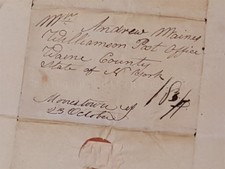 Mr. Andrew Maines
Williamson Post Office
Waine County
State of N York
Monestown
23 October